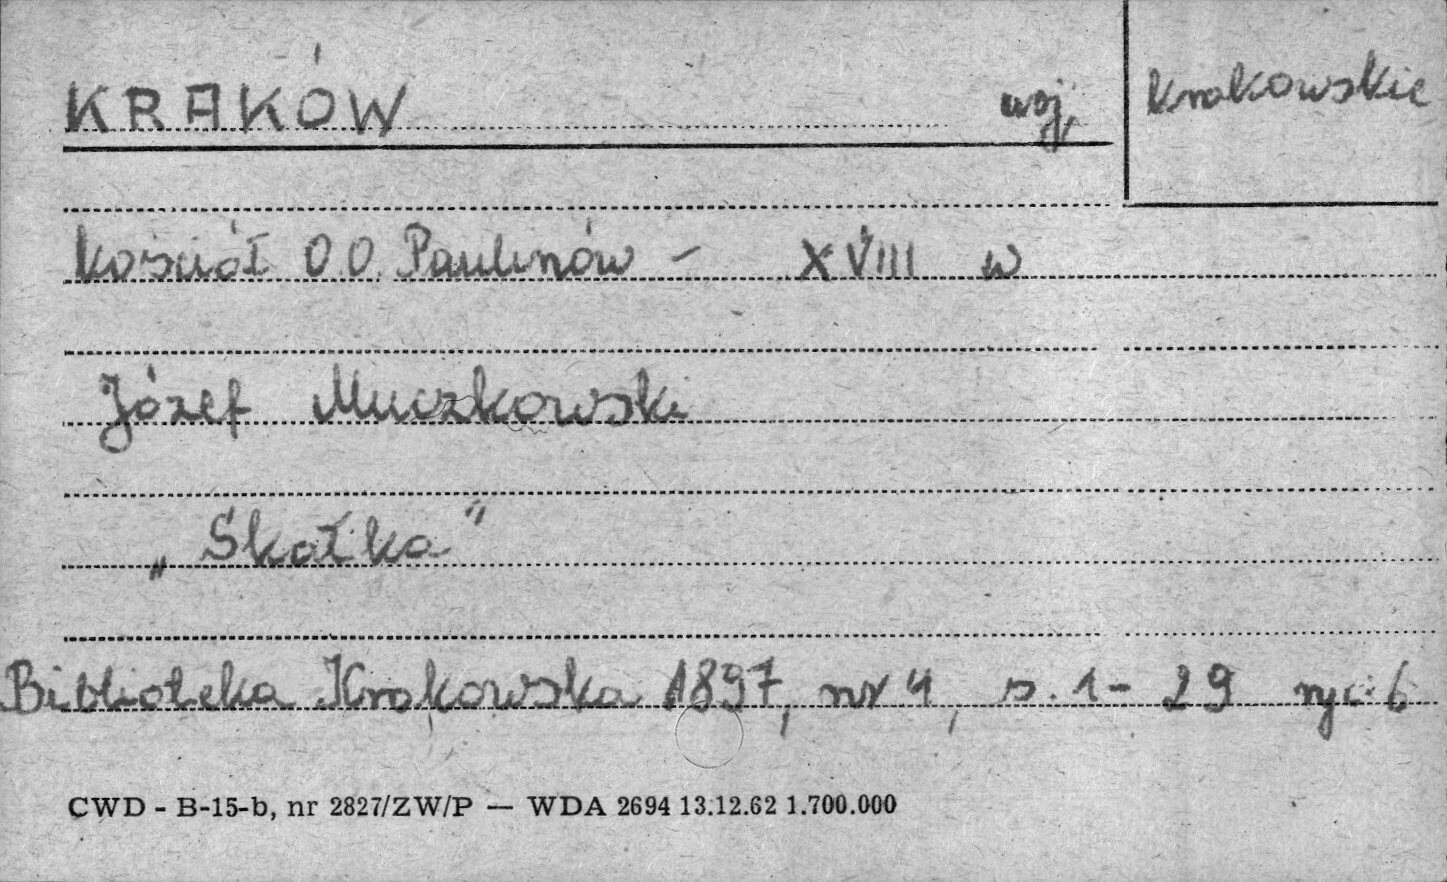 KRAKÓW woj, krakowskie
Kościół O.O. Paulinów – XVIII w
Józef Muczkowski
„Skałka"
Biblioteka Krakowska 1897, nr 4, s. 1 – 29 ryc. 6
CWD - B-15-b, nr 2827/ZW/P — WDA 2694 13.12.62 1.700.000